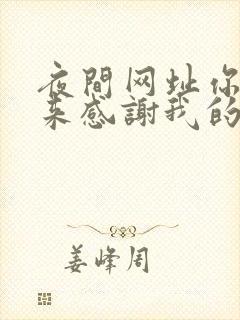 夜間网址你
来感謝我的
姜峰周